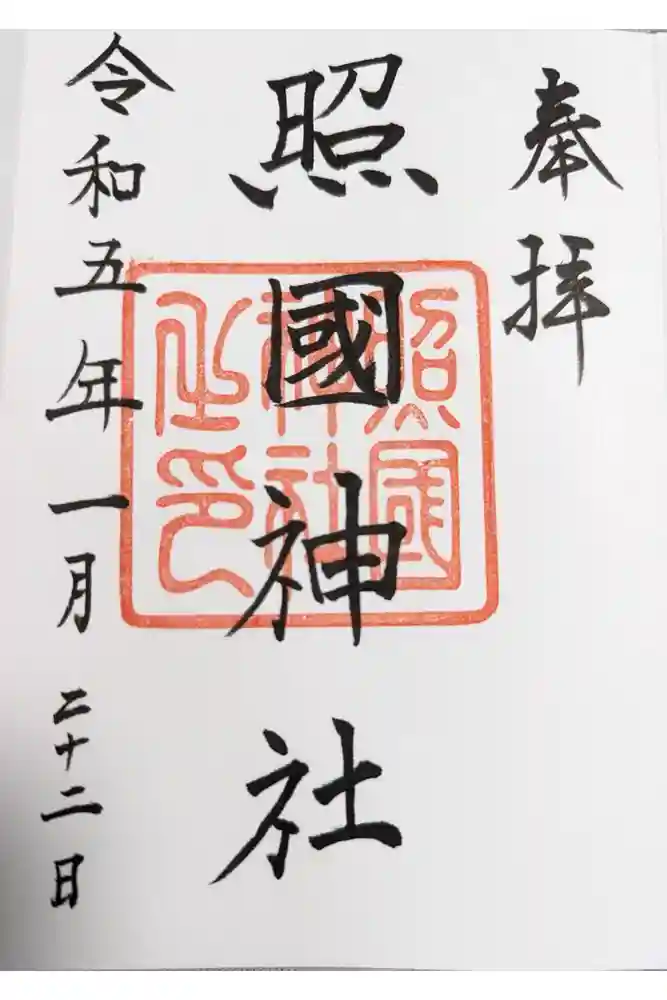 奉拝
照國神社
照国神社之印
令和五年一月二十二日